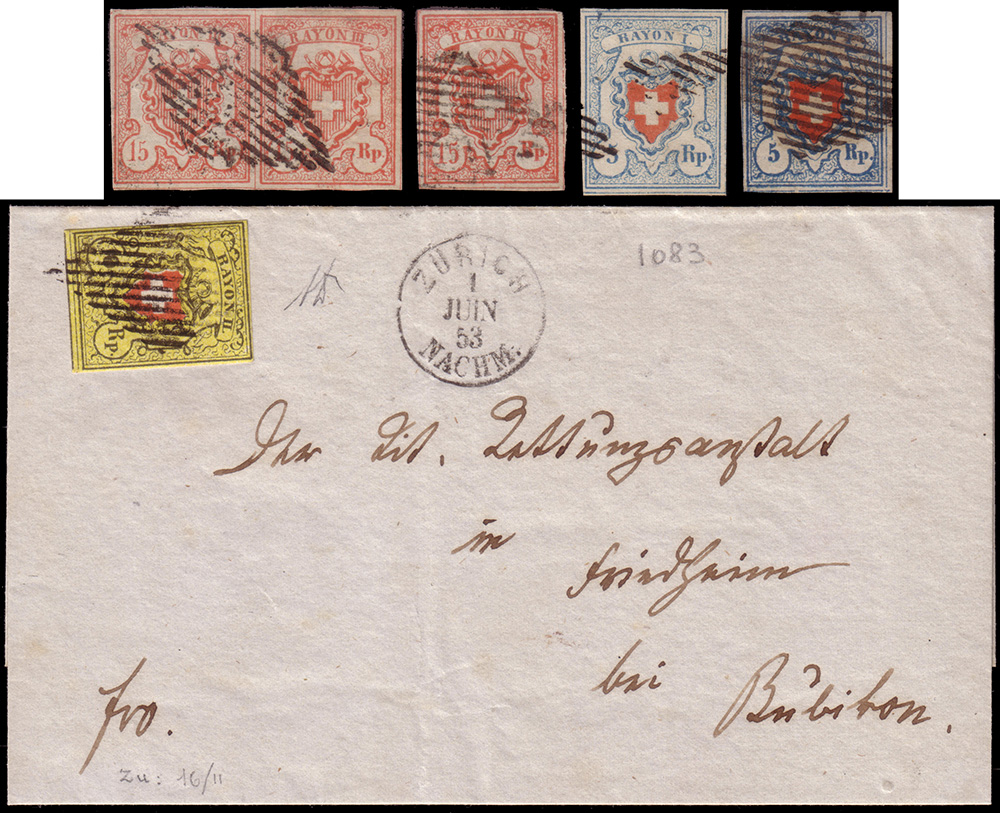 15 RAYON III Rp.
RAYON III Rp.
RAYON III
15 Rp.
RAYON I
5 Rp.
RAYON I
5 Rp.
RAYON II
Rp.
ZÜRICH
1
JUIN
53
NACHM.
1083.
Der Tit. Rettungsanstalt
in
Friedheim
bei
Bubikon.
fro.
Zu: 16/II